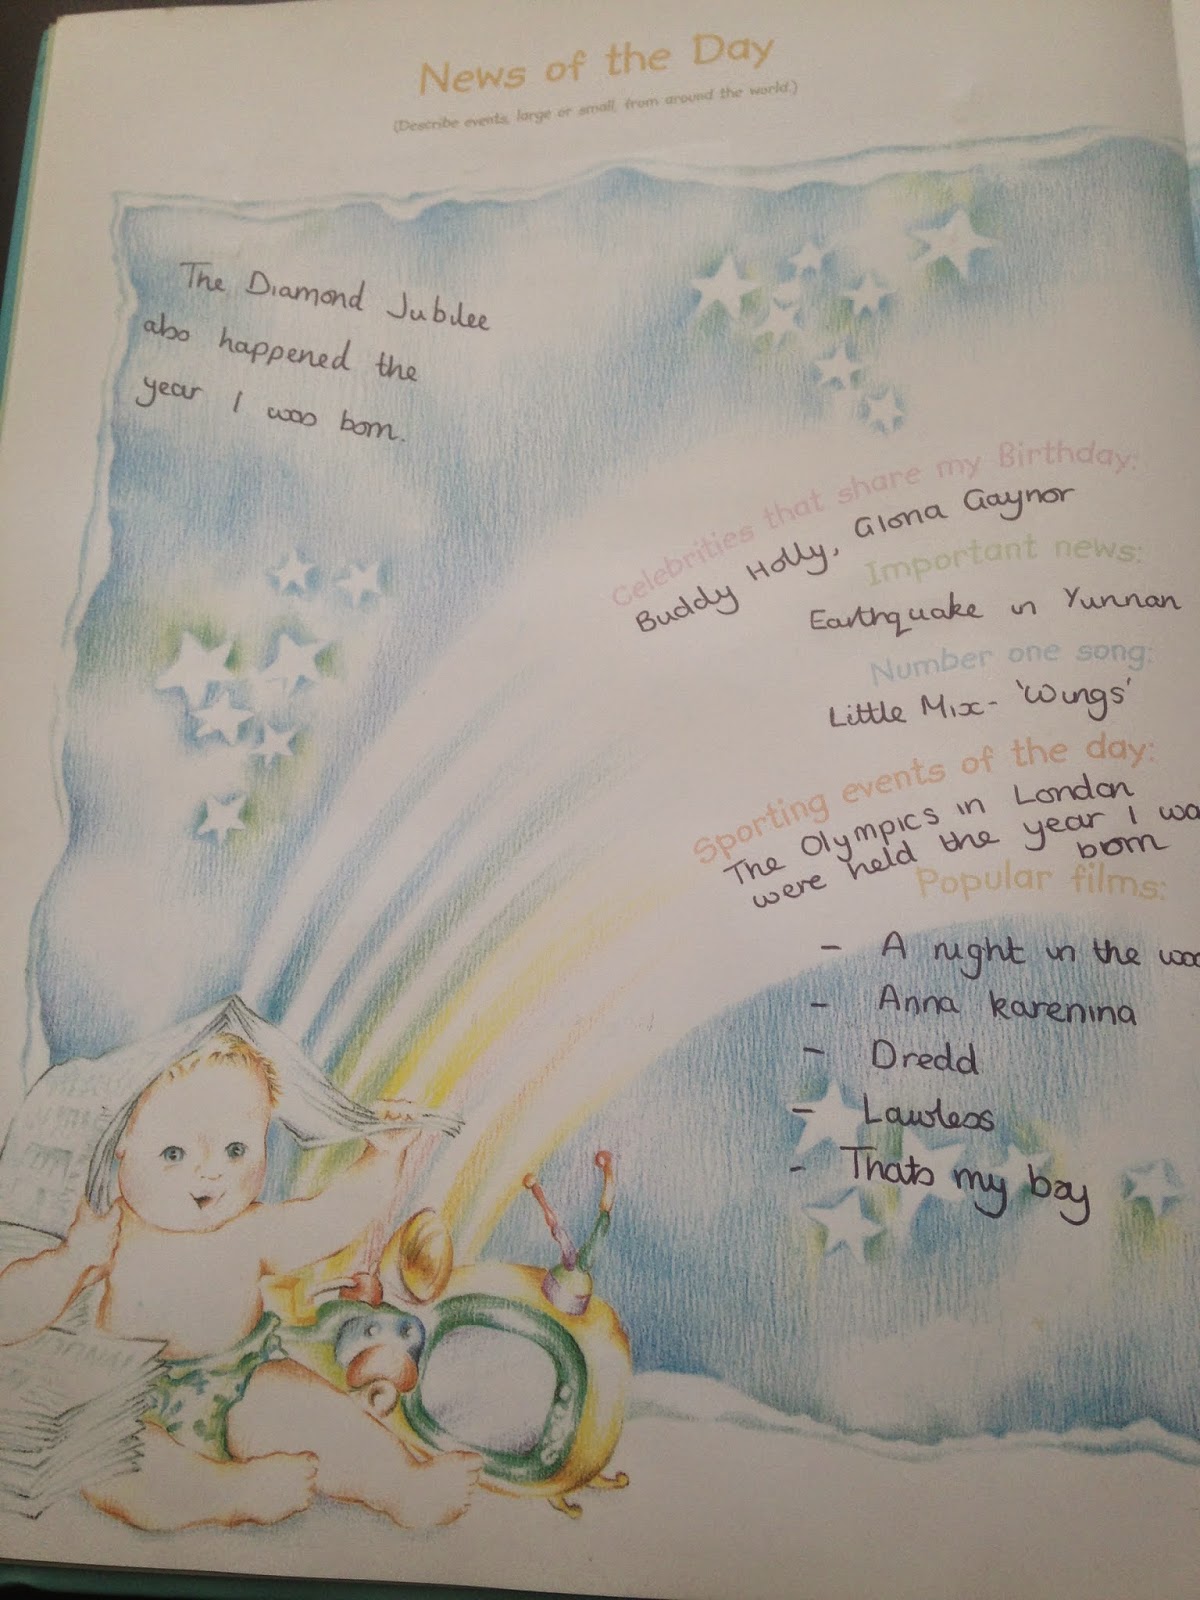 News of the Day
(Describe events, large or small, from around the world.)
The Diamond Jubilee
also happened the
year I was born.
Celebrities that share my Birthday:
Buddy Holly, Gloria Gaynor
Important news:
Earthquake in Yunnan
Number one song:
Little Mix - 'Wings'
Sporting events of the day:
The Olympics in London
were held the year I wa
born
Popular films:
- A night in the woo
- Anna Karenina
- Dredd
- Lawless
- Thats my boy